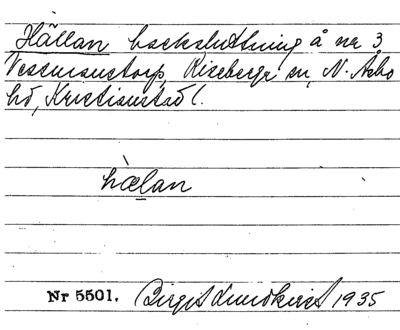 Hällan backsluttning å nr 3
Vessmanstorp, Riseberga sn, N. Åsbo
hd, Kristianstad l.
hælan
Nr 5501. Birgit Lundkvist 1935